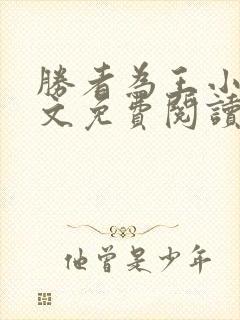 勝者為王小
文免費閱讀
他曾是少年